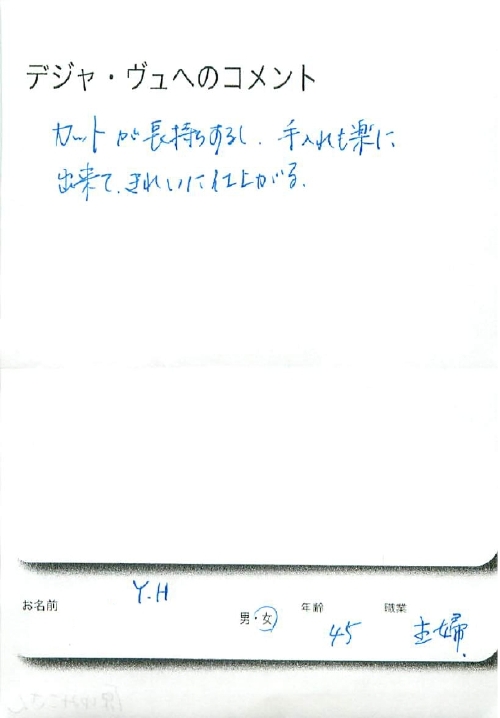 デジャ・ヴュへのコメント
カットが長持ちするし、手入れも楽に
出来て、きれいに仕上がる。
お名前 Y.H 男・女 年齢 45 職業 主婦